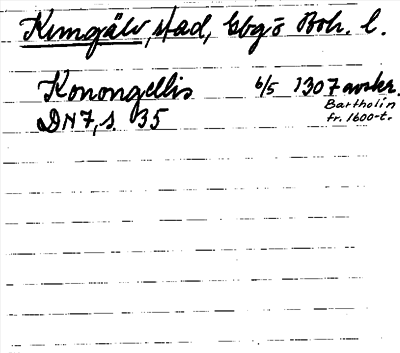 Kungälv, stad, Ebgö Boh. l.
Konongellis 6/5 1307 avskr.
Bartholin
DN 7, s. 35 fr. 1600-t.